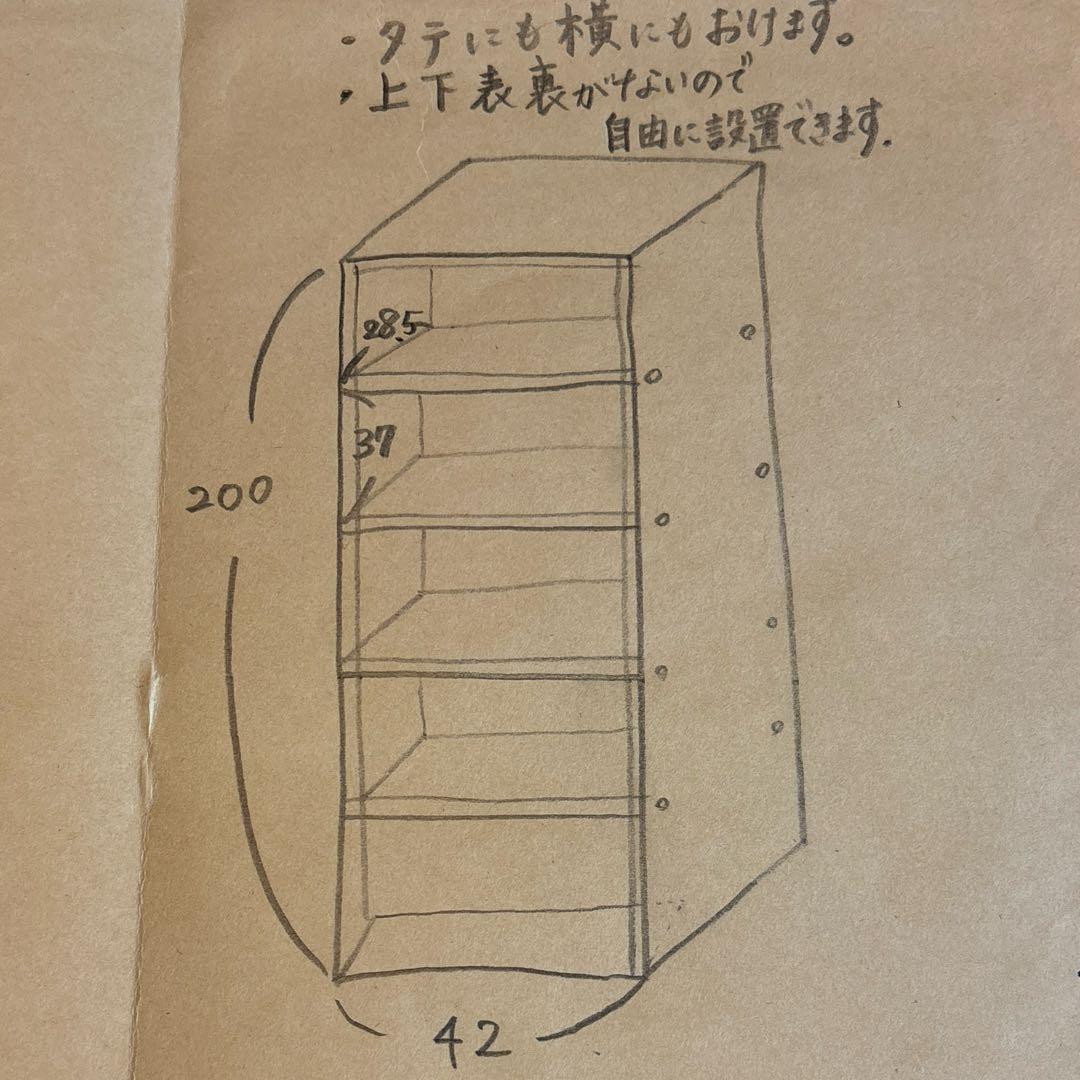 ・タテにも横にもおけます。
・上下表裏がないので
自由に設置できます.
28.5
37
200
42